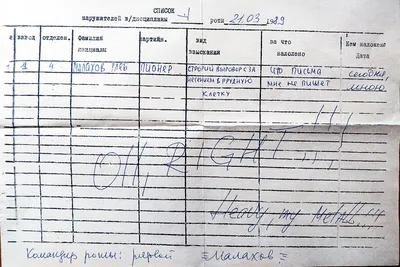 СПИСОК
нарушителей в/дисциплины 4 роты 21.03.1989
взвод отделен. Фамилия инициалы партийн. вид взыскания за что наложено Кем наложено Дата
1 4 МАЛАХОВ ПИОНЕР СТРОГИЙ ВЫГОВОР С ЗА ЧТО ПИСЬМА сегодня,
НЕСЕНИЕМ В ГРУДНУЮ МНЕ НЕ ПИШЕТ мною
КЛЕТКУ
OH, RIGHT!!!
Heavy, my Metall...!
Командир роты: рядовой Малахов